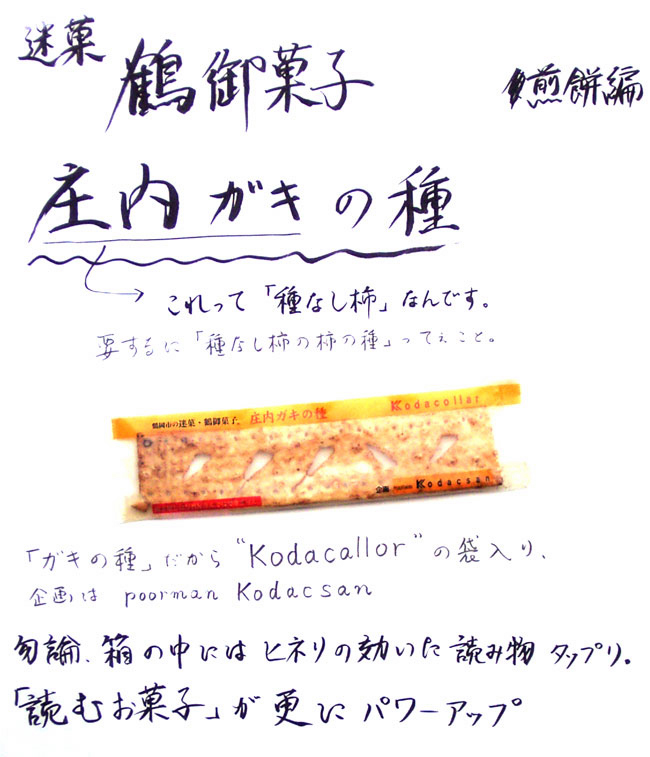 迷菓 鶴御菓子 煎餅編
庄内ガキの種
これって「種なし柿」なんです。
要するに「種なし柿の柿の種」ってぇこと。
鶴岡市の迷菓・鶴御菓子 庄内ガキの種 Kodacollar
企画 poorman Kodacsan
「ガキの種」だから“Kodacallor”の袋入り、
企画は poorman Kodacsan
勿論、箱の中には ヒネリの効いた 読み物 タップリ。
「読むお菓子」が 更に パワーアップ